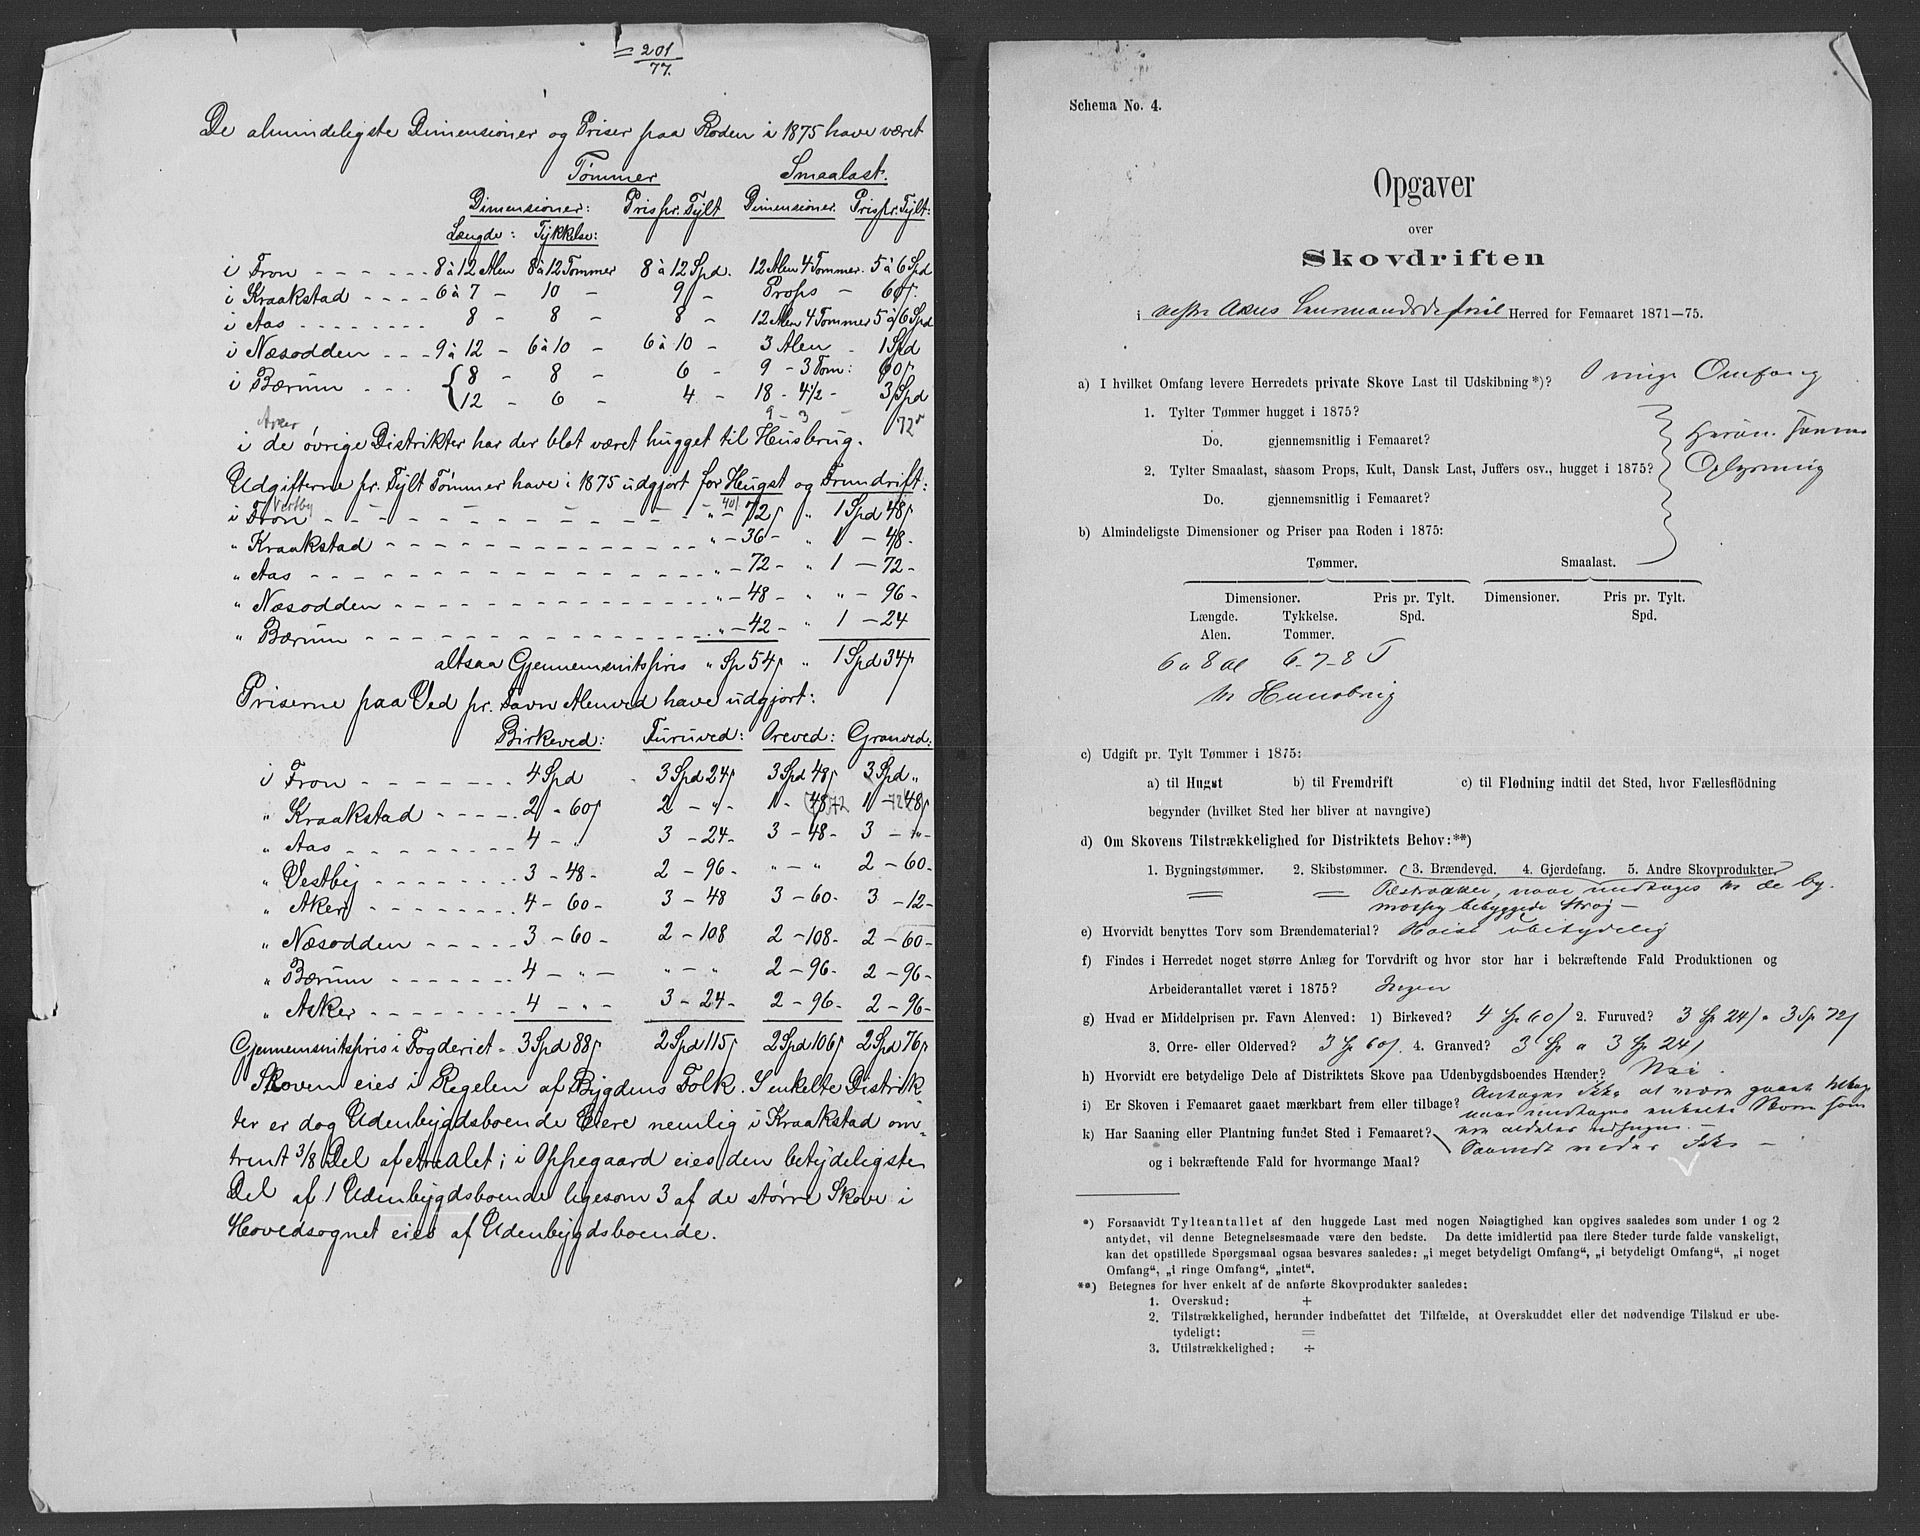 = 201
77.
De almindeligste Dimensioner og Priser paa Roden i 1875 have været
Tømmer Smaalast.
Dimensioner: Pris pr. Tylt Dimensioner. Pris pr. Tylt:
Længde: Tykkelse:
i Fron - - - - - - 8 à 12 Alen 8 à 12 Tommer 8 à 12 Spd. 12 Alen 4 Tommer. 5 à 6 Spd
i Kraakstad - - - - 6 à 7 - 10 - 9 - Props - 60 s.
i Aas - - - - - - - - 8 - 8 - 8 - 12 Alen 4 Tommer 5 à 6 Spd
i Næsodden - - - 9 à 12 - 6 à 10 - 6 à 10 - 3 Alen - 1 Spd
i Bærum - - - { 8 - 8 - 6 - 9 - 3 Tom: 60 s.
12 - 6 - 4 - 18 - 4 1/2 - 3 Spd
Asker 9 - 3 - 72 s
i de øvrige Distrikter har der blot været hugget til Husbrug.
Udgifterne pr. Tylt Tømmer have i 1875 udgjort for Hugst og Frundrift:
Vestby 40 s
i Fron - - - - - - - - - - " - 72 s " 1 Spd 48 s
" Kraakstad - - - - - - - - - - " - 36 - " 1 - 48 -
" Aas - - - - - - - - - - - - " - 72 - " 1 - 72 -
" Næsodden - - - - - - - - - - " - 48 - " " - 96 -
" Bærum - - - - - - - - - - - " - 42 - " 1 - 24
altsaa Gjennemsnitspris " Sp 54 s " 1 Spd 34 s
Priserne paa Ved pr. Favn Alenved have udgjort:
Birkeved: Furuved: Oreved: Granved:
i Fron - - - - - - - 4 Spd - 3 Spd 24 s 3 Spd 48 s 3 Spd "
" Kraakstad - - - - - 2 - 60 s 2 - " - 1 - (48 s) 72 1 - 72 48 s
" Aas - - - - - - - - 4 - " 3 - 24 - 3 - 48 - 3 - " -
" Vestby - - - - - - - 3 - 48 - 2 - 96 - " - " 2 - 60 -
" Aker - - - - - - - - 4 - 60 - 3 - 48 3 - 60 - 3 - 12 -
" Næsodden - - - - - 3 - 60 - 2 - 108 2 - 108 - 2 - 60 -
" Bærum - - - - - - - 4 - " - " - " 2 - 96 - 2 - 96 -
" Asker - - - - - - - - 4 - " - 3 - 24 - 2 - 96 - 2 - 96 -
Gjennemsnitspris i Fogderiet - 3 Spd 88 s 2 Spd 115 s 2 Spd 106 s 2 Spd 76 s
Skoven eies i Regelen af Bygdens Folk. I enkelte Distrik
ter er dog Udenbygdsboende Eiere nemlig i Kraakstad om-
trent 3/8 Del af Arealet; i Oppegaard eies den betydeligste
Del af 1 Udenbygdsboende ligesom 3 af de større Skove i
Hovedsognet eies af Udenbygdsboende.
Schema No. 4.
Opgaver
over
Skovdriften
i vestre Akers Lensmandsdistrict Herred for Femaaret 1871—75.
a) I hvilket Omfang levere Herredets private Skove Last til Udskibning*)? I ringe Omfang
1. Tylter Tømmer hugget i 1875?
Do. gjennemsnitlig i Femaaret? Herom savnes
2. Tylter Smaalast, saasom Props, Kult, Dansk Last, Juffers osv., hugget i 1875? Oplysning
Do. gjennemsnitlig i Femaaret?
b) Almindeligste Dimensioner og Priser paa Roden i 1875:
Tømmer. Smaalast.
Dimensioner. Pris pr. Tylt. Dimensioner. Pris pr. Tylt.
Længde. Tykkelse. Spd. Spd.
Alen. Tommer.
6 a 8 al 6-7-8 T
til Huusbrug
c) Udgift pr. Tylt Tømmer i 1875:
a) til Hugst b) til Fremdrift c) til Flødning indtil det Sted, hvor Fællesflödning
begynder (hvilket Sted her bliver at navngive)
d) Om Skovens Tilstrækkelighed for Distriktets Behov:**)
1. Bygningstømmer. 2. Skibstømmer. (3. Brændeved. 4. Gjerdefang. 5. Andre Skovprodukter.)
= = Tilstrækker, naar undtages til de by-
mæssig bebyggede Strøg -
e) Hvorvidt benyttes Torv som Brændematerial? Høist ubetydelig
f) Findes i Herredet noget større Anlæg for Torvdrift og hvor stor har i bekræftende Fald Produktionen og
Arbeiderantallet været i 1875? Ingen
g) Hvad er Middelprisen pr. Favn Alenved: 1) Birkeved? 4 Sp 60 s 2. Furuved? 3 Sp 24 s a 3 Sp 72 s
3. Orre- eller Olderved? 3 Sp 60 s. 4. Granved? 3 Sp a 3 Sp 24 s
h) Hvorvidt ere betydelige Dele af Distriktets Skove paa Udenbygdsboendes Hænder? Nei.
i) Er Skoven i Femaaret gaaet mærkbart frem eller tilbage? Antages ikke at være gaaet tilbage
naar undtages enkelte Skove som
k) Har Saaning eller Plantning fundet Sted i Femaaret?
og i bekræftende Fald for hvormange Maal? Saavidt vides Ikke -
*) Forsaavidt Tylteantallet af den huggede Last med nogen Nøiagtighed kan opgives saaledes som under 1 og 2
antydet, vil denne Betegnelsesmaade være den bedste. Da dette imidlertid paa flere Steder turde falde vanskeligt,
kan det opstillede Spørgsmaal ogsaa besvares saaledes: „i meget betydeligt Omfang“, „i betydeligt Omfang“, „i noget
Omfang“, „i ringe Omfang“, „intet“.
**) Betegnes for hver enkelt af de anførte Skovprodukter saaledes:
1. Overskud: +
2. Tilstrækkelighed, herunder indbefattet det Tilfælde, at Overskuddet eller det nødvendige Tilskud er ube-
tydeligt: =
3. Utilstrækkelighed: ÷